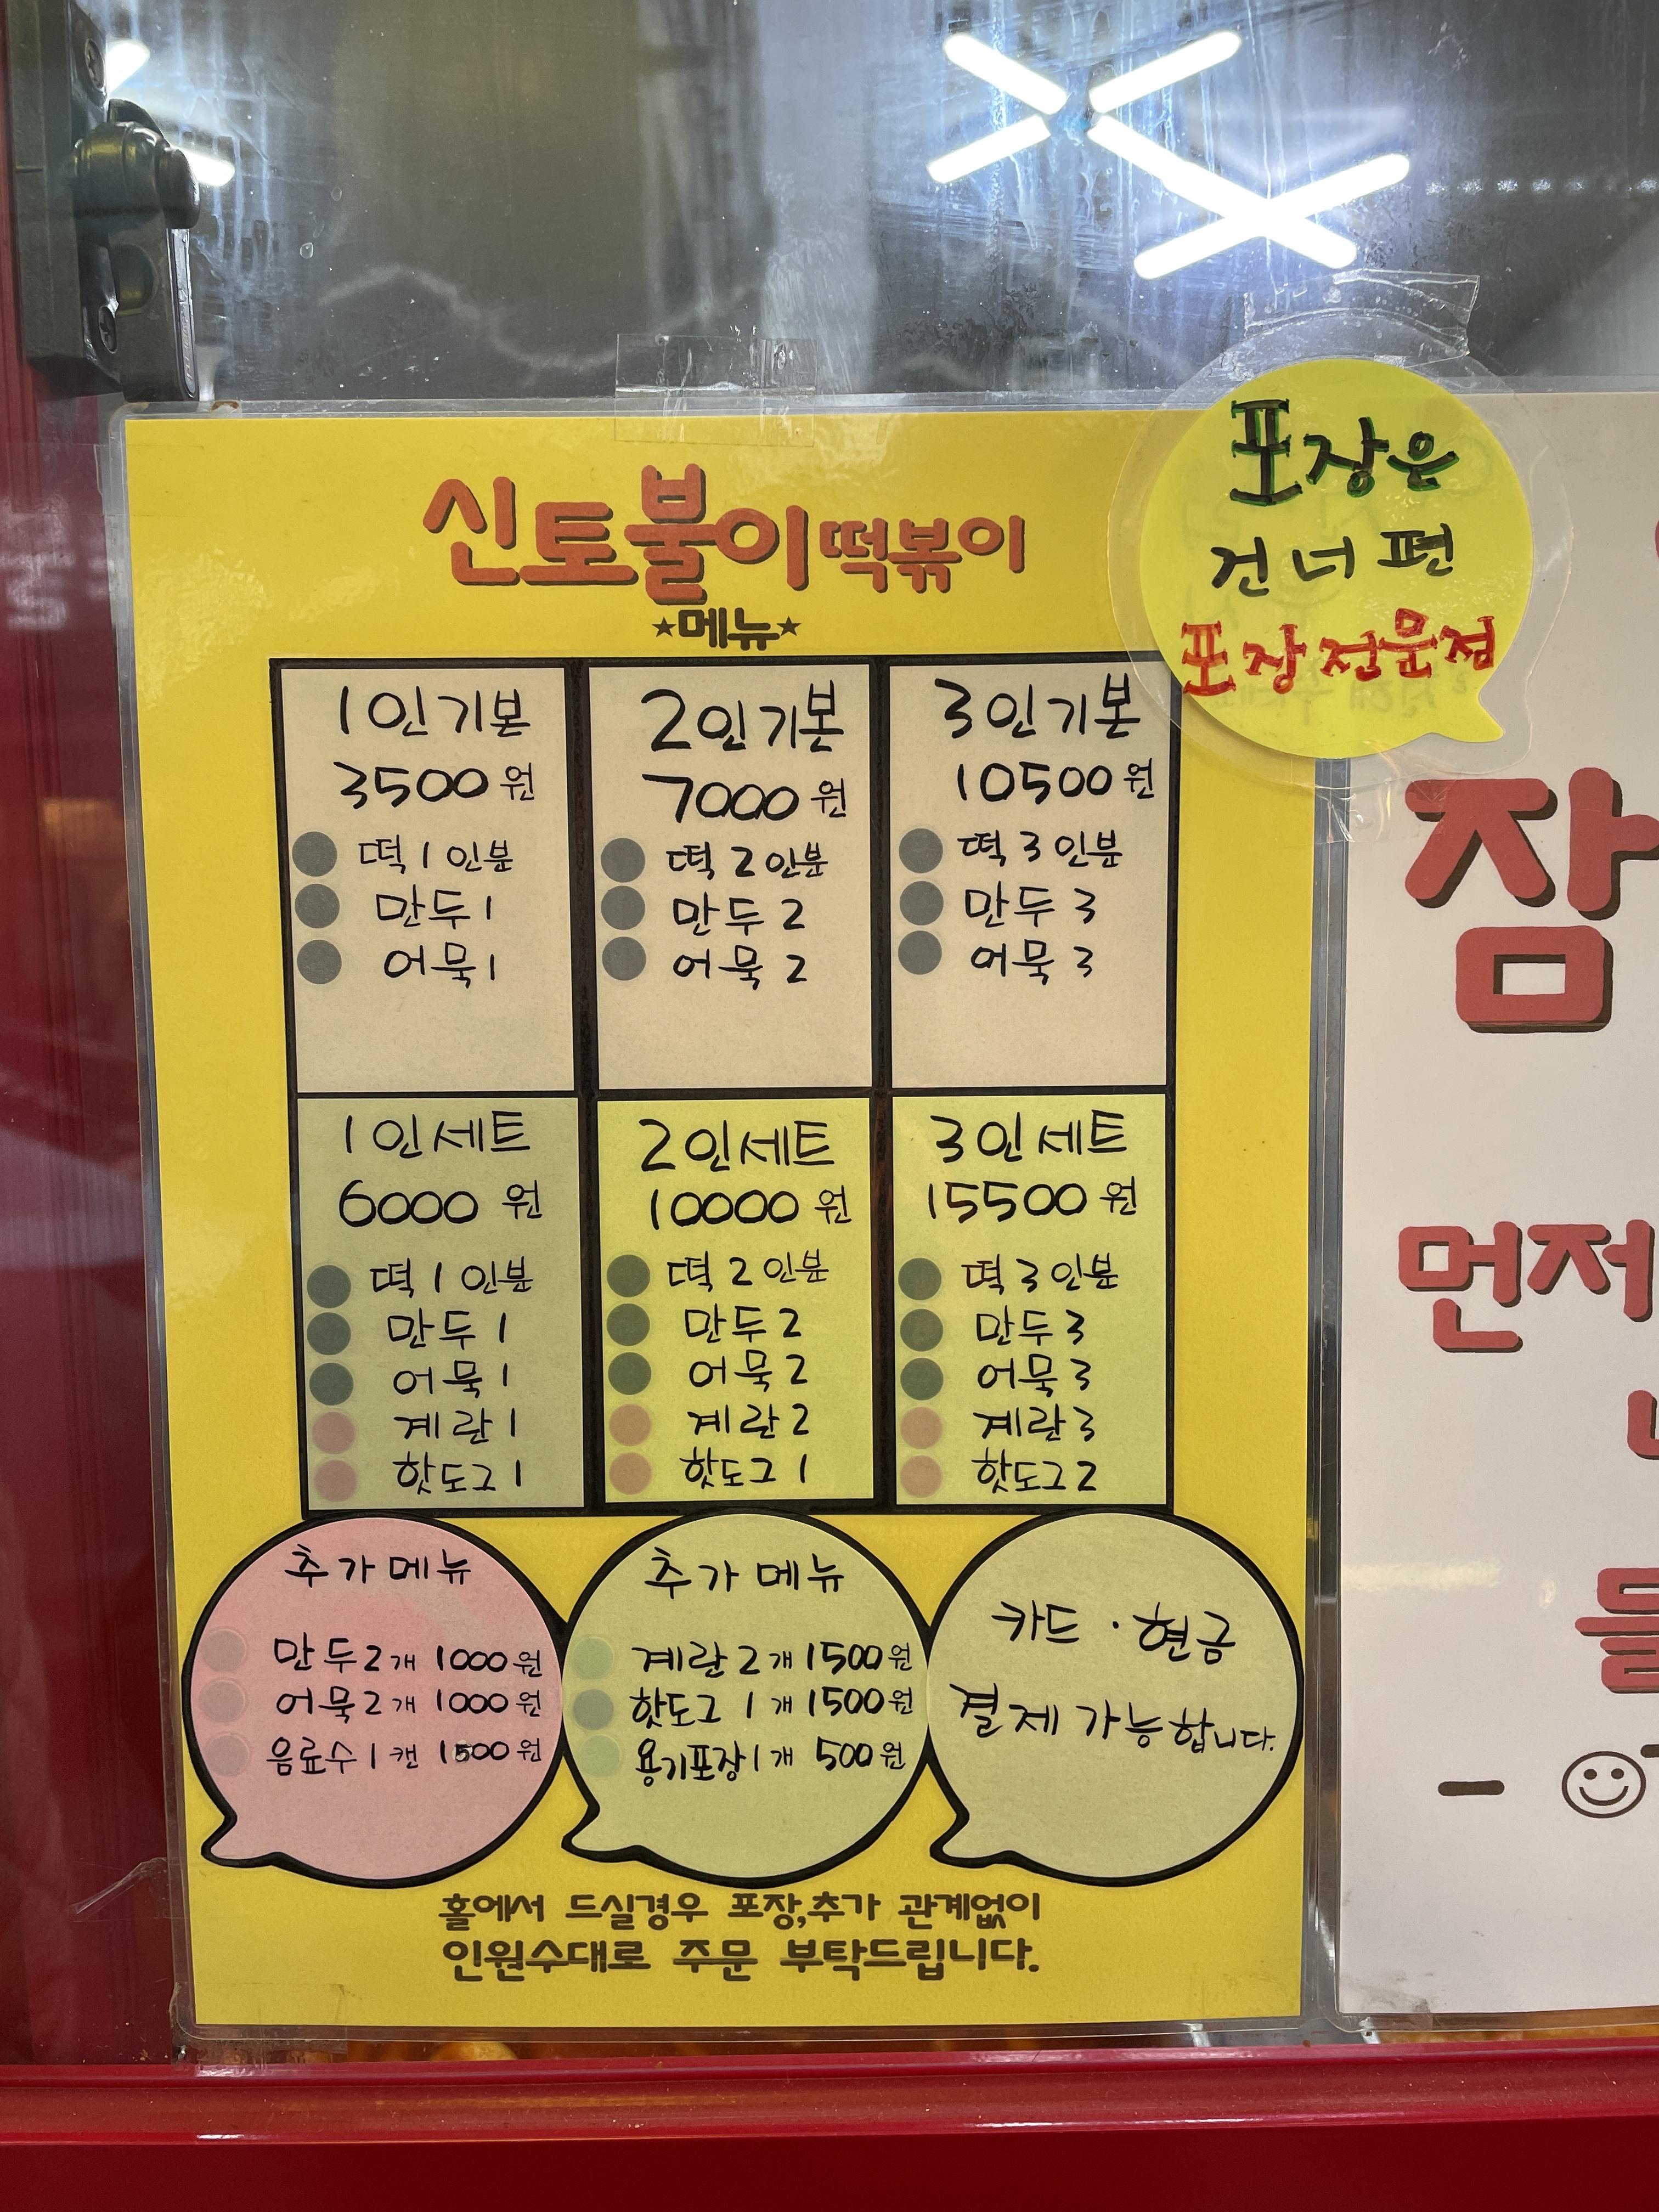 신토불이 떡볶이
★메뉴★
포장은
건너편
포장전문점
1인기본
3500원
떡1인분
만두1
어묵1
2인기본
7000원
떡2인분
만두2
어묵2
3인기본
10500원
떡3인분
만두3
어묵3
1인세트
6000원
떡1인분
만두1
어묵1
계란1
핫도그1
2인세트
10000원
떡2인분
만두2
어묵2
계란2
핫도그1
3인세트
15500원
떡3인분
만두3
어묵3
계란3
핫도그2
추가메뉴
만두2개 1000원
어묵2개 1000원
음료수1캔 1500원
추가메뉴
계란2개 1500원
핫도그1개 1500원
용기포장1개 500원
카드·현금
결제가능합니다.
홀에서 드실경우 포장,추가 관계없이
인원수대로 주문 부탁드립니다.
잠
먼저